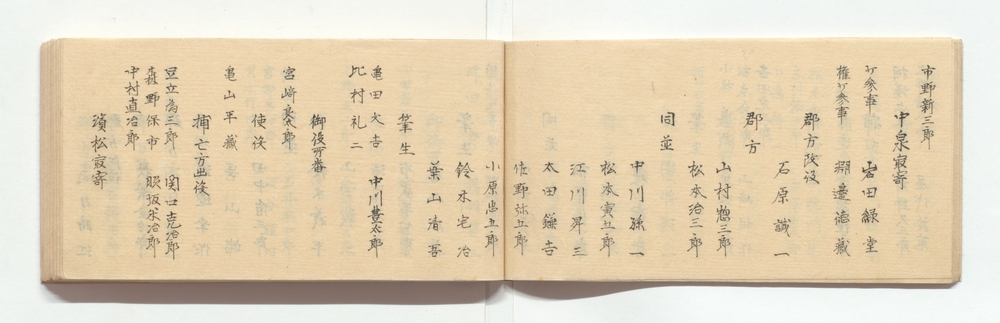 市野新三郎
中泉最寄
少参事 岩田緑堂
権少参事 淵邊徳蔵
郡方改役
石原誠一
郡方
山村惣三郎
松本治三郎
同並
中川孫一
松本寅五郎
江川昇三
太田鎌吉
佐野弥五郎
小原忠五郎
鈴木宅治
葉山清吾
筆生
亀田大吉 中川豊太郎
比村礼二
御役所番
宮﨑良太郎
使役
亀山平蔵
捕亡方無役
足立為三郎 関口克治郎
森野保市 服坂米治郎
中村直治郎
濱松最寄